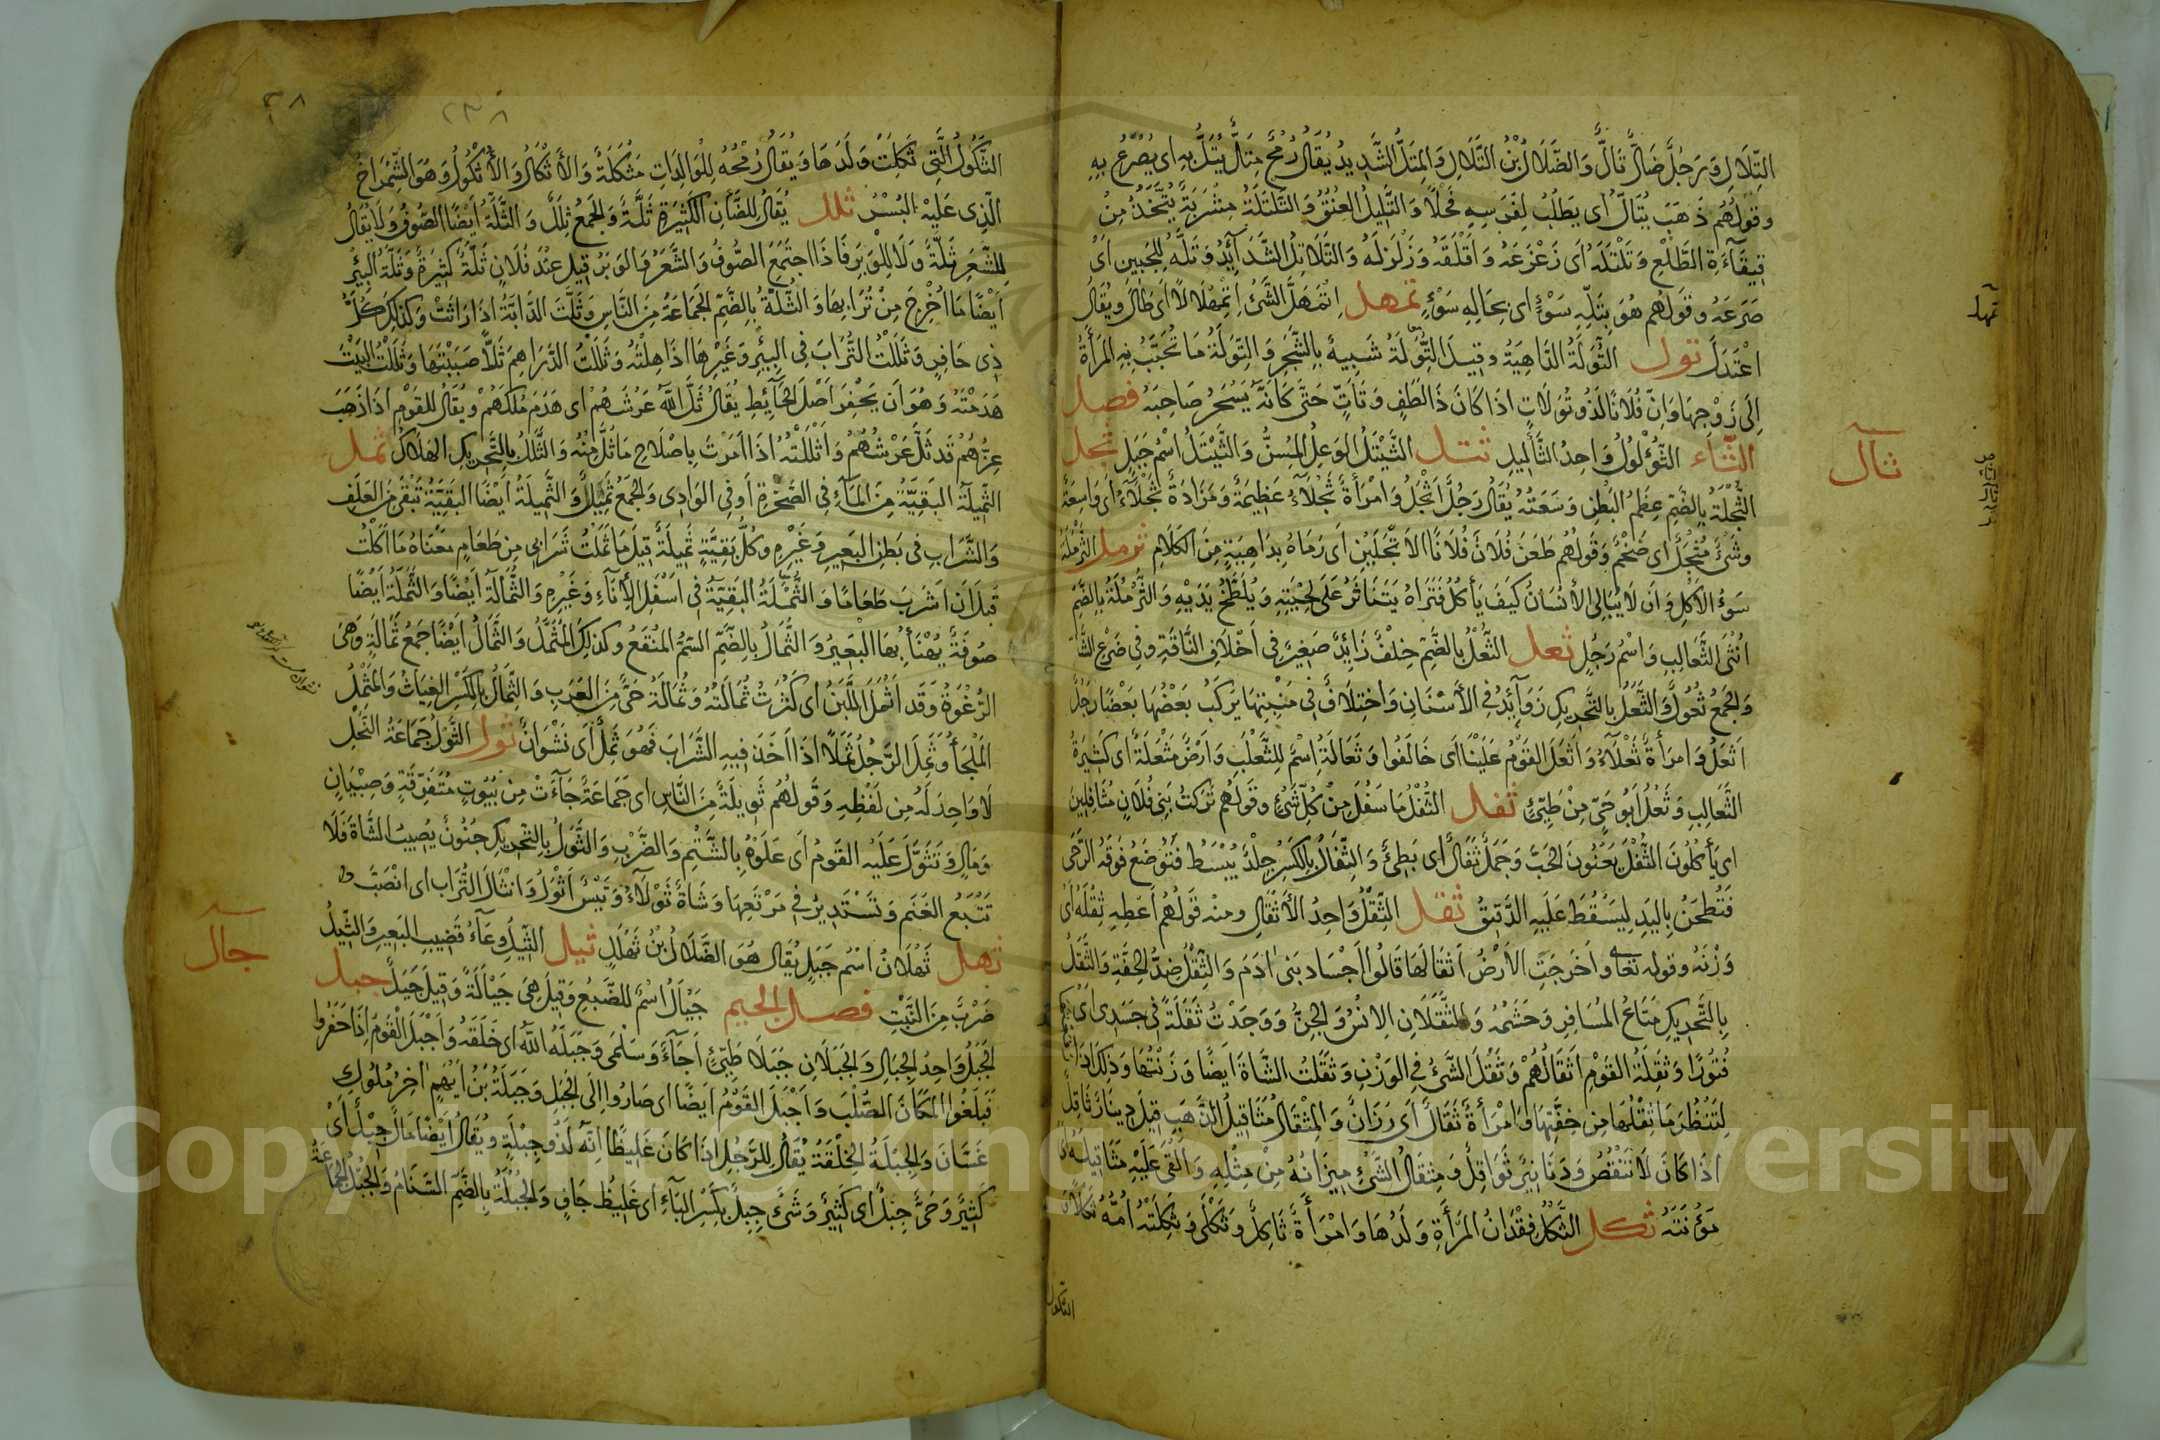 التِّلَالِ وَرَجُلٌ ضَالٌّ تَالٌّ وَالضَّلَالُ بْنُ التَّلَالِ وَالمِتَلُّ الشَّدِيدُ يُقَالُ رُمْحٌ مِتَلٌّ يُتَلُّ بِهِ اى يُصْرَعُ بِهِ
وقولهُم ذَهَبَ يُتَالُّ اى يَطْلُبُ لِفَرَسِهِ فَحْلًا وَالتَّلِيلُ العُنُقُ وَالتَّلْتَلَةُ مِشْرَبَةٌ يُتَّخَذُ مِنْ
قِيقَآءَةِ الطَّلْعِ وَتَلْتَلَهُ اى زَعْزَعَهُ وَاَقْلَقَهُ وَزَلْزَلَهُ وَالتَّلَاتِلُ الشَّدَآئِدُ وَتَلَّهُ لِلْجَبِينِ اَىْ
صَرَعَهُ وَقَولُهم هُوَ بِتِلَّةِ سَوْءٍ اى بِحَالِةِ سَوْءٍ تمهل اِتْمَهَلَّ الشَّىْءُ اِتْمِهْلَالًا اى طَالَ ويُقَالُ
اعْتَدَلَ تول التُّوَلَةُ الدَّاهِيَةُ وقِيلَ التِّوَلَةُ شَبِيهٌ بِالسِّحْرِ وَالتِّوَلَةُ مَا تُحَبِّبُ بِهِ المَرْأَةُ
اِلَى زَوْجِهَا وَاِنَّ فُلَانًا لَذُو تُوَلَاتٍ اذَا كَانَ ذَا لُطْفٍ وَتَاَتٍّ حَتَّى كَانَّهُ يَسْحَرُ صَاحِبَهُ فصل
الثاء الثُّؤْلُولُ وَاحِدُ الثَّآلِيلِ ثتل الثَّيْتَلُ الوَعِلُ المُسِنُّ وَالثَّيْتَلُ اسْمُ جَبَلٍ ثجل
الثُّجْلَةُ بِالضَّمِّ عِظَمُ البَطْنِ وَسَعَتُهُ يُقَالُ رَجُلٌ اَثْجَلُ وَامْرَأَةٌ ثَجْلَاءُ عَظِيمَةٌ وَمَزَادَةٌ ثَجْلَآءُ اى وَاسِعَةٌ
وشَىْءٌ مُثَجَّلٌ اى ضَخْمٌ وَقَولُهُم طَعَنَ فُلَانٌ فُلَانًا الاَثْجَلَيْنِ اَى رَمَاهُ بِدَاهِيَةٍ مِنَ الكَلَامِ ثرمل الثَّرْمَلَةُ
سُوْءُ الاَكْلِ وَاَن لَا يُبَالِىَ الاِنْسَانُ كَيفَ يَأكُلُ فَتَرَاهُ يَتَنَاثَرُ عَلَى لِحْيَتِهِ وَيُلَطِّخُ يَدَيْهِ وَالثُّرْمُلَةُ بِالضَّمِّ
اُنْثَى الثَّعَالِبِ وَاسْمُ رَجُلٍ ثعل الثُّعْلُ بِالضَّمِّ خِلْفٌ زَايِدٌ صَغِيرٌ فِى اَخْلَافِ النَّاقَةِ وَفِى ضَرْعِ الشَّاةِ
وَالجَمْعُ ثُعُولٌ وَالثَّعَلُ بِالتَّحْرِيكِ زَوَآئِدُ فِى الاَسْنَانِ وَاخْتِلَافٌ فِى مَنْبِتِهَا يَرْكَبُ بَعْضُهَا بَعْضًا رَجُلٌ
اَثْعَلُ وَامرَأَةٌ ثَعْلَآءُ وَاَثْعَلَ القَوْمُ عَلَيْنَا اى خَالَفُوا وَثُعَالَةُ اِسْمٌ لِلثَّعْلَبِ وَاَرْضٌ مَثْعَلَةٌ اى كَثِيرَةُ
الثَّعَالِبِ وَثُعَلُ اَبُو حَىٍّ مِنْ طَيِّئٍ ثفل الثُّفْلُ مَا سَفُلَ مِنْ كُلِّ شَىْءٍ وقَولُهُم تَرَكْتُ بَنِى فُلَانٍ مُثَافِلِينَ
اى يَأكُلُونَ الثُّفْلَ يَعْنُونَ الحَبَّ وَجَمَلٌ ثَفَالٌ اى بَطِئٌ وَالثِّفَالُ بِالكَسْرِ جِلْدٌ يُبْسَطُ فَتُوضَعُ فَوقَهُ الرَّحَى
فَتُطْحَنُ بِاليَدِ لِيَسْقُطَ عَلَيهِ الدَّقِيقُ ثقل الثِّقْلُ وَاحِدُ الاَثْقَالِ ومنْه قَولُهُم اَعْطِهِ ثِقْلَهُ اى
وَزْنَهُ وقوله تعالى واَخرَجَتِ الاَرْضُ اَثقَالَهَا قَالُوا اَجْسَادُ بَنِى اٰدَمَ وَالثِّقْلُ ضِدُّ الخِفَّةِ وَالثَّقَلُ
بِالتَّحْرِيكِ مَتَاعُ المُسَافِرِ وَحَشَمُهُ وَالثَّقَلَانِ الاِنْسُ وَالجِنُّ وَوَجَدْتُ ثَقَلَةً فِى جَسَدِى اَى
فُتُورًا وَثَقِلَةُ القَوْمِ اَثقَالُهُمْ وَثَقُلَ الشَّىْءُ فِى الوَزْنِ وَثَقَلْتُ الشَّاةَ اَيضًا وَزَنْتُهَا وَذَلِكَ اذَا
لِتَنْظُرَ مَا ثِقْلُهَا مِن خِفَّتِهَا وَامْرَأَةٌ ثَقَالٌ اَى رَزَانٌ وَالمِثْقَالُ مِثَاقِيلُ الذَّهَبِ قِيلَ دِينَارٌ ثَاقِلٌ
اذَا كَانَ لَا يَنْقُصُ وَدَنَانِيرُ ثَوَاقِلُ وَمِثقَالُ الشَّىْءِ مِيزَانُهُ مِنْ مِثْلِهِ وَاَلقَى عَلَيْهِ مَثَاقِيلَهُ اى
مَؤُنَتَهُ ثكل الثُّكْلُ فِقْدَانُ المَرْأَةِ وَلَدَهَا وَامْرَأَةٌ ثَاكِلٌ وثَكْلَى وَثَكِلَتْهُ اُمُّهُ ثُكْلًا وَ
الثكول
تمهل
ثآل
٢٣٨
٣٨
الثَّكُولُ الَّتِى ثَكِلَتْ وَلَدَهَا وَيُقَالُ رُمْحُهُ لِلْوَالِدَاتِ مَثْكَلَةٌ وَالاَثْكَالُ وَالاُثْكُولُ وَهُوَ الشِّمْرَاخُ
الَّذِى عَلَيْهِ البُسْرُ ثلل يُقَالُ لِلضَّأنِ الكَثِيرَةِ ثَلَّةٌ وَالجَمْعُ ثِلَلٌ وَالثَّلَّةُ اَيْضًا الصُّوفُ وَلَا يُقَالُ
لِلشَّعَرِ ثَلَّةٌ وَلَا لِلْوَبَرِ فَاِذَا اجتَمَعَ الصُّوفُ وَالشَّعَرُ وَالوَبَرُ قِيلَ عِنْدَ فُلَانٍ ثَلَّةٌ كَثِيرَةٌ وَثَلَّةُ البِئْرِ
اَيْضًا مَا اُخْرِجَ مِنْ تُرَابِهَا وَالثُّلَّةُ بِالضَّمِّ الجَمَاعَةُ مِنَ النَّاسِ وَثَلَّتِ الدَّابَّةُ اذَا رَاثَتْ وَكَذَلِكَ كُلُّ
ذِى حَافِرٍ وَثَلَلْتُ التُّرَابَ فِى البِئْرِ وَغَيْرِهَا اذَا هِلْتُهُ وَثَلَلْتُ الدَّرَاهِمَ ثَلًّا صَبَبْتُهَا وَثَلَلْتُ البَيْتَ
هَدَمْتُهُ وَهُوَ اَن يَحْفِرَ اَصْلَ الحَآئِطِ يُقَالُ ثَلَّ اللّٰهُ عَرْشَهُمْ اى هَدَمَ مُلْكَهُمْ وَيُقَالُ لِلقَوْمِ اذَا ذَهَبَ
عِزُّهُمْ قَد ثُلَّ عَرْشُهُمْ وَاَثْلَلْتُهُ اذَا اَمَرْتَ بِاِصْلَاحِ مَا ثُلَّ مِنْهُ وَالثَّلَلُ بِالتَّحْرِيكِ الهَلَاكُ ثمل
الثَّمِيلَةُ البَقِيَّةُ مِنَ المَآءِ فِى الصَّخْرَةِ اَو فِى الوَادِى وَالجَمْعُ ثَمِيلٌ وَالثَّمِيلَةُ اَيْضًا البَقِيَّةُ تَبْقَى مِنَ العَلَفِ
وَالشَّرَابِ فِى بَطْنِ البَعِيرِ وَغَيْرِهِ وَكُلُّ بَقِيَّةٍ ثَمِيلَةٌ قِيلَ مَا ثَمَلْتُ شَرَابِى مِن طَعَامٍ مَعْنَاهُ مَا اَكَلْتُ
قَبْلَ اَن اَشْرَبَ طَعَامًا وَالثُّمْلَةُ البَقِيَّةُ فِى اَسْفَلِ الاِنَآءِ وَغَيْرِهِ وَالثُّمَالَةُ اَيْضًا وَالثَّمَلَةُ اَيْضًا
صُوفَةٌ يُهْنَأُ بِهَا البَعِيرُ وَالثُّمَالُ بِالضَّمِّ السَّمُّ المُنْقَعُ وَكَذَلِكَ المُثَمَّلُ وَالثُّمَالُ اَيْضًا جَمعُ ثُمَالَةٍ وَهِىَ
الرُّغْوَةُ وَقَد اَثْمَلَ اللَّبَنُ اى كَثُرَتْ ثُمَالَتُهُ وَثُمَالَةُ حَىٌّ مِنَ العَرَبِ وَالثِّمَالُ بِالكَسْرِ الغِيَاثُ وَالمَثْمِلُ
المَلْجَأُ وَثَمِلَ الرَّجُلُ ثَمَلًا اذَا اَخَذَ فِيهِ الشَّرَابُ فَهُوَ ثَمِلٌ اَى نَشْوَانٌ ثول الثَّوْلُ جَمَاعَةُ النَّحْلِ
لَا وَاحِدَ لَهُ مِن لَفْظِهِ وَقَولُهُم ثَوِيلَةٌ مِنَ النَّاسِ اى جَمَاعَةٌ جَآءَتْ مِن بُيُوتٍ مُتَفَرِّقَةٍ وَصِبْيَانٍ
وَمَالٍ وَتَثَوَّلَ عَلَيْهِ القَومُ اى عَلَوْهُ بِالشَّتْمِ وَالضَّرْبِ وَالثَّوَلُ بِالتَّحْرِيكِ جُنُونٌ يُصِيبُ الشَّاةَ فَلَا
تَتْبَعُ الغَنَمَ وَتَسْتَدِيرُ فِى مَرْتَعِهَا وَشَاةٌ ثَوْلَآءُ وَتَيْسٌ اَثْوَلُ وَانْثَالَ التُّرَابُ اى انْصَبَّ
ثهل ثَهْلَانُ اسْمُ جَبَلٍ يُقَالُ هُوَ الضَّلَالُ بْنُ ثَهْلَلٍ ثيل الثِّيلُ وِعَآءُ قَضِيبِ البَعِيرِ وَالثِّيلُ
ضَرْبٌ مِنَ النَّبْتِ فصل الجيم جَيْأَلُ اسْمٌ لِلضَّبُعِ وَقِيلَ هِىَ جَيْأَلَةٌ وَقِيلَ جَيَلٌ جبل
الجَبَلُ وَاحِدُ الجِبَالِ وَالجَبَلَانِ جَبَلَا طَيِّئٍ اَجَآءُ وَسَلْمَى وَجَبَلَهُ اللّٰهُ اى خَلَقَهُ وَاَجْبَلَ القَومُ اِذَا حَفَرُوا
فَبَلَغُوا المَكَانَ الصُّلْبَ وَاَجْبَلَ القَوْمُ اَيضًا اى صَارُوا اِلَى الجَبَلِ وَجَبَلَةُ بْنُ اَيْهَمَ اٰخِرُ مُلُوكِ
غَسَّانَ وَالجِبِلَّةُ الخِلْقَةُ يُقَالُ لِلرَّجُلِ اذَا كَانَ غَلِيظًا اِنَّهُ لَذُو جِبْلَةٍ وَيُقَالُ اَيْضًا مَالٌ جِبْلٌ اَىْ
كَثِيرٌ وَحَىٌّ جِبْلٌ اى كَثِيرٌ وَشَىْءٌ جِبِلٌ بِكَسْرِ البَآءِ اى غَلِيظٌ جَافٍ وَالجُبْلَةُ بِالضَّمِّ السَّنَامُ وَالجُبْلُ الجَمَاعَةُ
جأل
Copyright © King Saud University